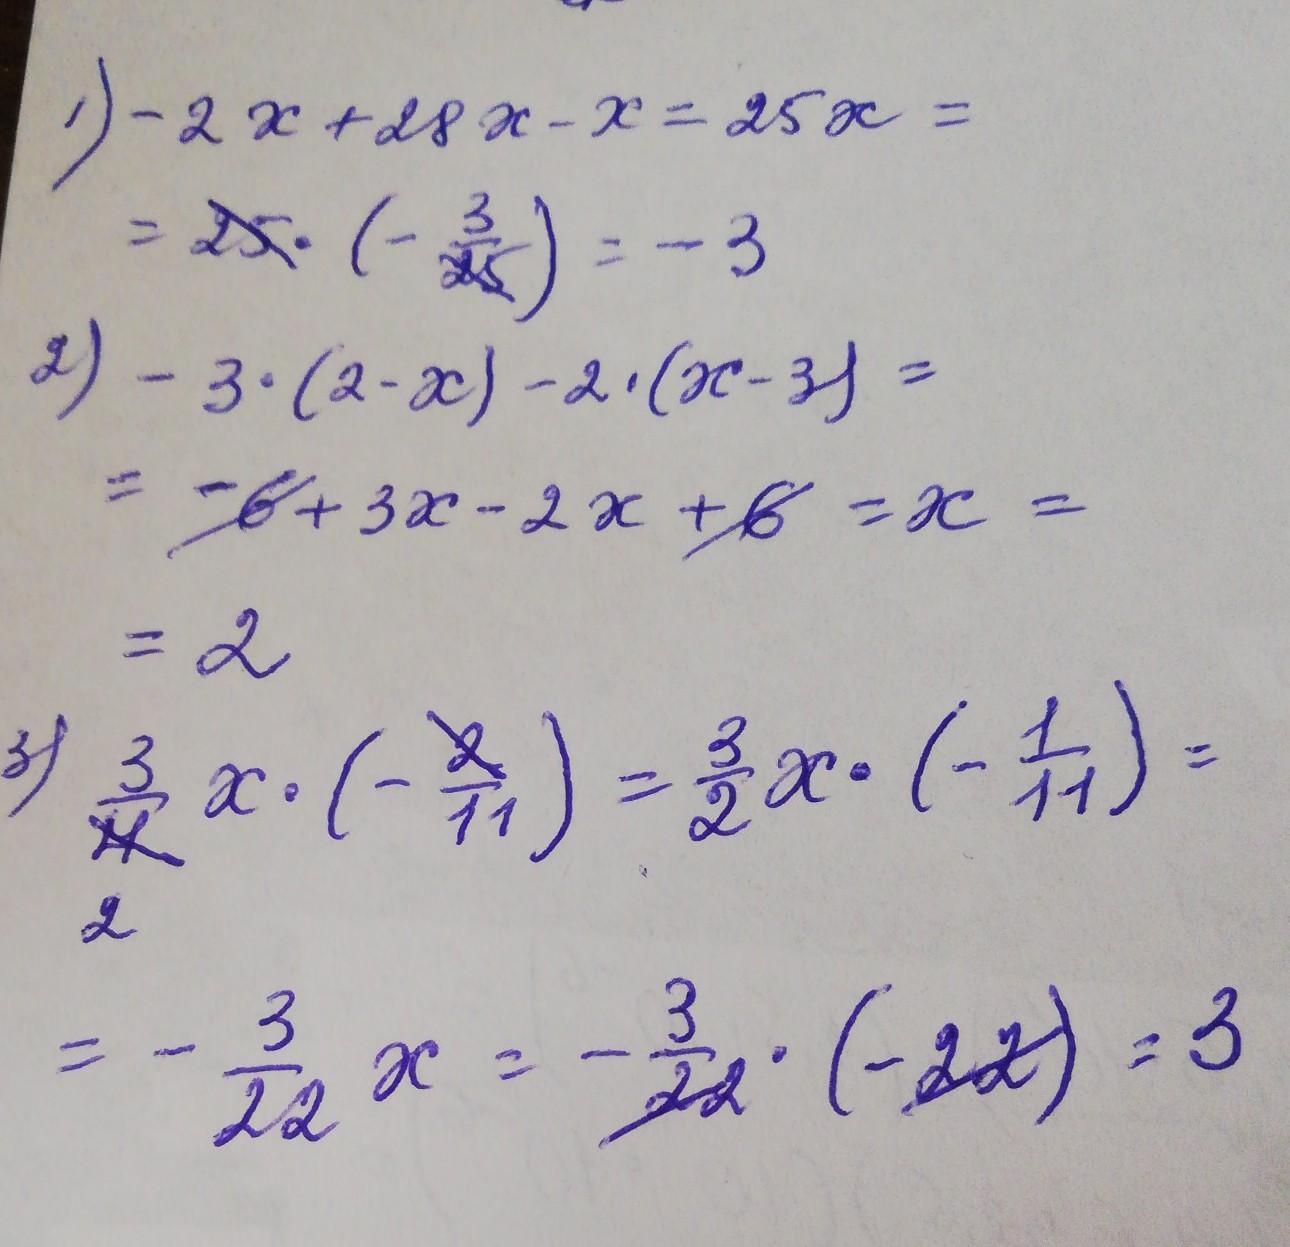 1) - 2x + 28x - x = 25x =
= 25 · (- 3/25) = - 3
2) - 3 · (2 - x) - 2 · (x - 3) =
= - 6 + 3x - 2x + 6 = x =
= 2
3) 3/4 x · (- 2/11) = 3/2 x · (- 1/11) =
2
= - 3/22 x = - 3/22 · (- 22) = 3